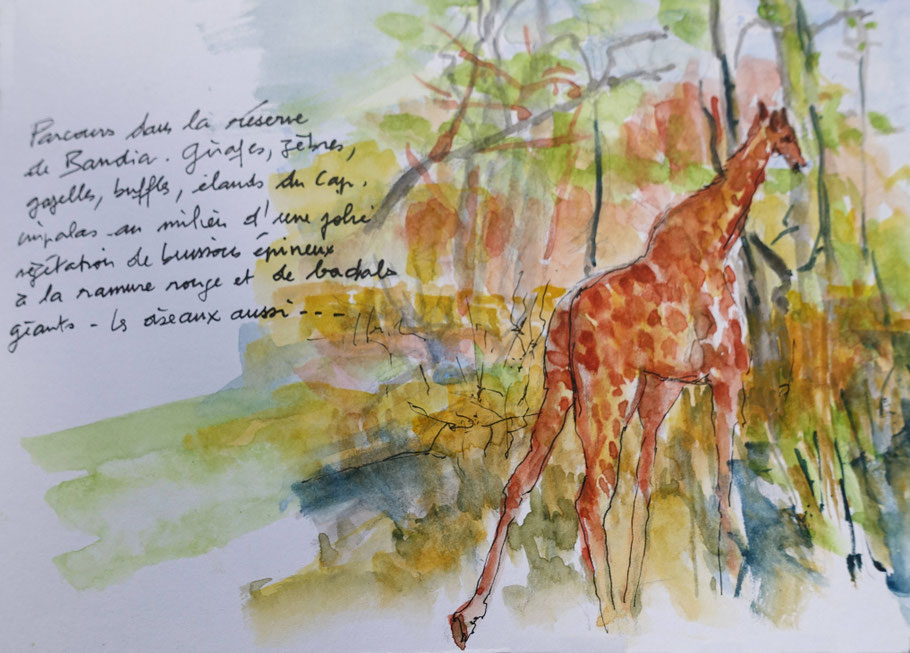 Parcours dans la réserve
de Bandia. Girafes, zèbres,
gazelles, buffles, élands du Cap,
impalas au milieu d'une jolie
végétation de buissons épineux
à la ramure rouge et de baobabs
géants - les oiseaux aussi ---